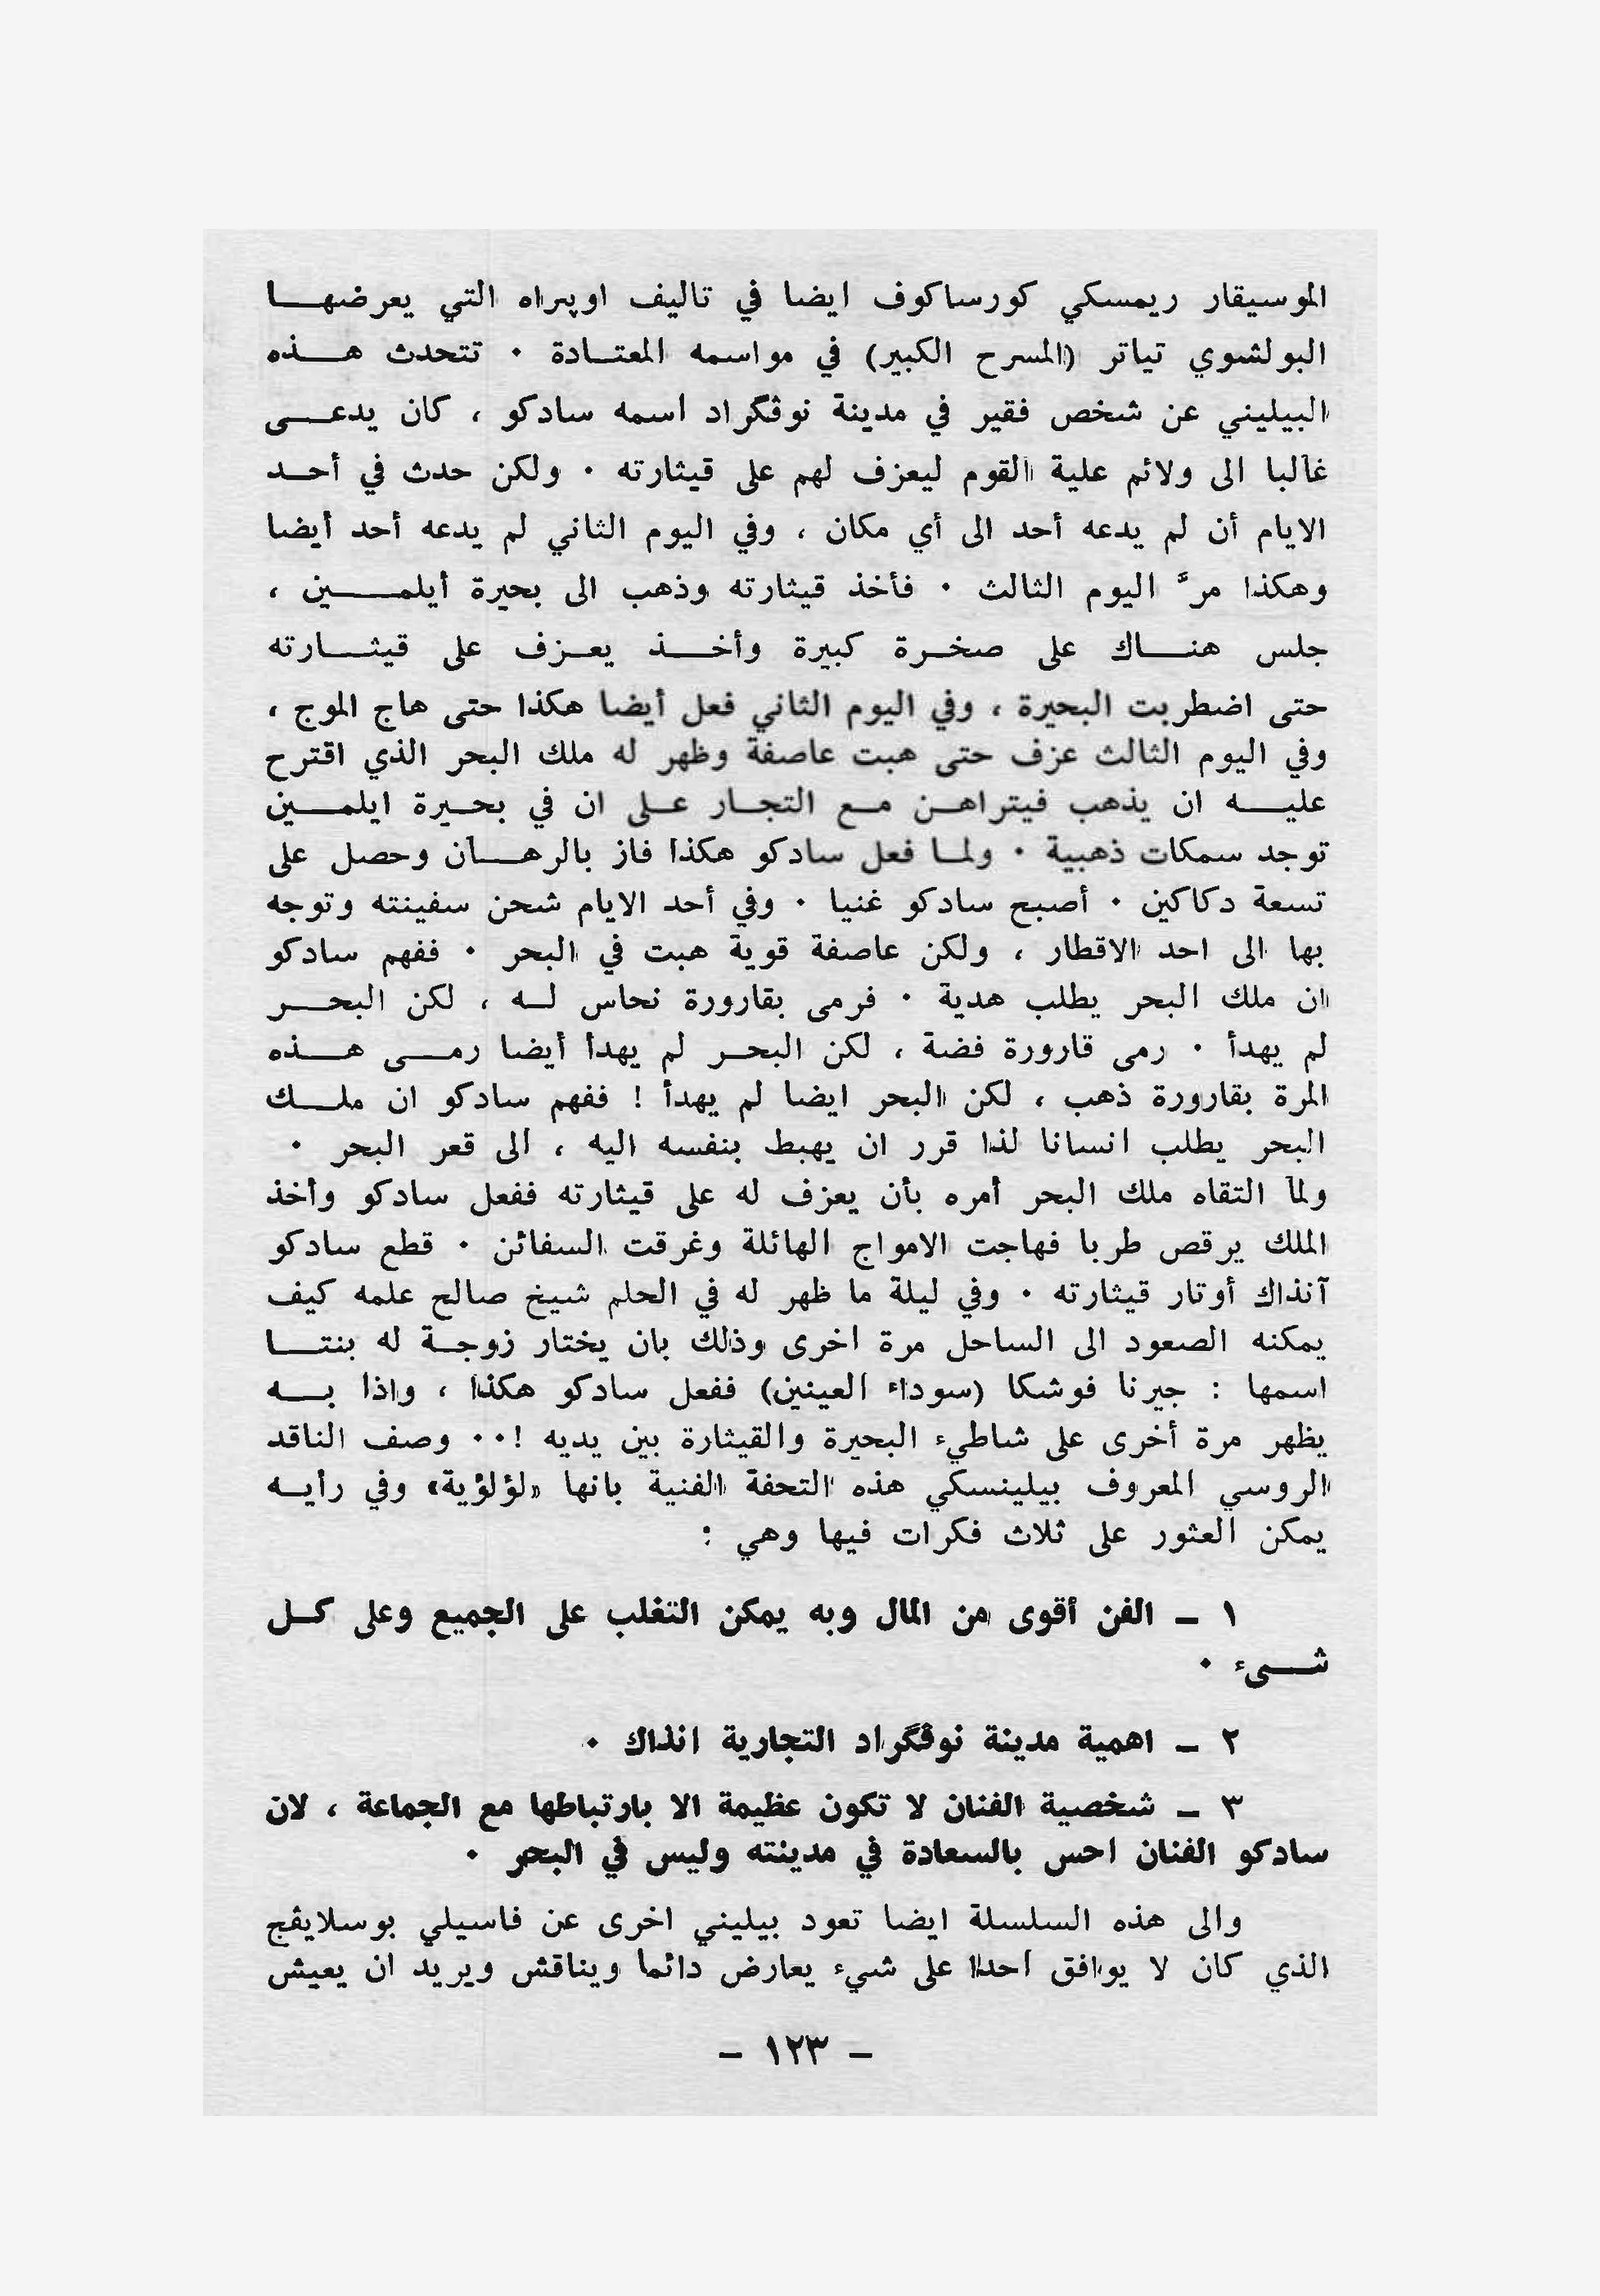 الموسيقار ريمسكي كورساكوف ايضا في تاليف اوپراه التي يعرضهـــا
البولشوي تياتر (المسرح الكبير) في مواسمه المعتــادة ٠ تتحدث هـــذه
البيليني عن شخص فقير في مدينة نوڤگراد اسمه سادكو ، كان يدعــى
غالبا الى ولائم علية القوم ليعزف لهم على قيثارته ٠ ولكن حدث في أحــد
الايام أن لم يدعه أحد الى أي مكان ، وفي اليوم الثاني لم يدعه أحد أيضا
وهكذا مرَّ اليوم الثالث ٠ فأخذ قيثارته وذهب الى بحيرة أيلمـــين ،
جلس هنــاك على صخــرة كبيرة وأخـــذ يعــزف على قيثــارته
حتى اضطربت البحيرة ، وفي اليوم الثاني فعل أيضا هكذا حتى هاج الموج ،
وفي اليوم الثالث عزف حتى هبت عاصفة وظهر له ملك البحر الذي اقترح
عليـــه ان يذهب فيتراهــن مــع التجــار علــى ان في بحــيرة ايلمــين
توجد سمكات ذهبية ٠ ولمــا فعل سادكو هكذا فاز بالرهــان وحصل على
تسعة دكاكين ٠ أصبح سادكو غنيا ٠ وفي أحد الايام شحن سفينته وتوجه
بها الى احد الاقطار ، ولكن عاصفة قوية هبت في البحر ٠ ففهم سادكو
ان ملك البحر يطلب هدية ٠ فرمى بقارورة نحاس لــه ، لكن البحــر
لم يهدأ ٠ رمى قارورة فضة ، لكن البحــر لم يهدأ أيضا رمــى هـــذه
المرة بقارورة ذهب ، لكن البحر ايضا لم يهدأ ! ففهم سادكو ان ملــك
البحر يطلب انسانا لذا قرر ان يهبط بنفسه اليه ، الى قعر البحر ٠
ولما التقاه ملك البحر أمره بأن يعزف له على قيثارته ففعل سادكو وأخذ
الملك يرقص طربا فهاجت الامواج الهائلة وغرقت السفائن ٠ قطع سادكو
آنذاك أوتار قيثارته ٠ وفي ليلة ما ظهر له في الحلم شيخ صالح علمه كيف
يمكنه الصعود الى الساحل مرة اخرى وذلك بان يختار زوجــة له بنتــا
اسمها : جيرنا فوشكا (سوداء العينين) ففعل سادكو هكذا ، واذا بــه
يظهر مرة أخرى على شاطيء البحيرة والقيثارة بين يديه !٠٠ وصف الناقد
الروسي المعروف بيلينسكي هذه التحفة الفنية بانها «لؤلؤية» وفي رأيــه
يمكن العثور على ثلاث فكرات فيها وهي :
١ ــ الفن أقوى من المال وبه يمكن التغلب على الجميع وعلى كــل
شـــىء ٠
٢ ــ اهمية مدينة نوڤگراد التجارية انذاك ٠
٣ ــ شخصية الفنان لا تكون عظيمة الا بارتباطها مع الجماعة ، لان
سادكو الفنان احس بالسعادة في مدينته وليس في البحر ٠
والى هذه السلسلة ايضا تعود بيليني اخرى عن فاسيلي بوسلايڤج
الذي كان لا يوافق احدا على شيء يعارض دائما ويناقش ويريد ان يعيش
– ١٢٣ –